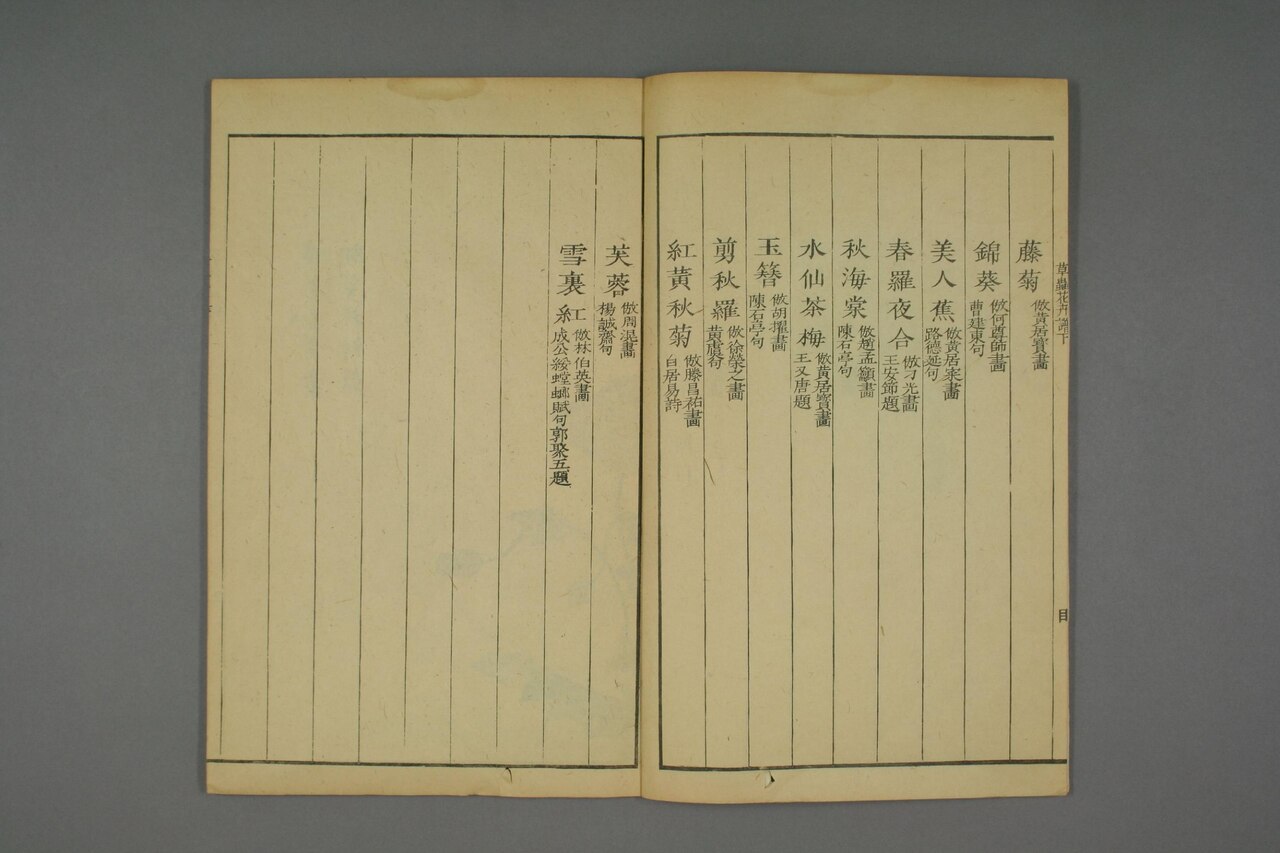 藤菊 倣黃居寶畫
錦葵 倣何尊師畫 曹建東句
美人蕉 倣黃居寀畫 路德延句
春羅夜合 倣刁光畫 王安節題
秋海棠 倣趙孟籲畫 陳石亭句
水仙茶梅 倣黃居寶畫 王又唐題
玉簪 倣胡擢畫 陳石亭句
剪秋羅 倣徐榮之畫 黃虞句
紅黃秋菊 倣滕昌祐畫 白居易詩
芙蓉 倣周滉畫 楊誠齋句
雪裏紅 倣林伯英畫 成公綏螳螂賦句郭聚五題
草蟲花卉譜下
目